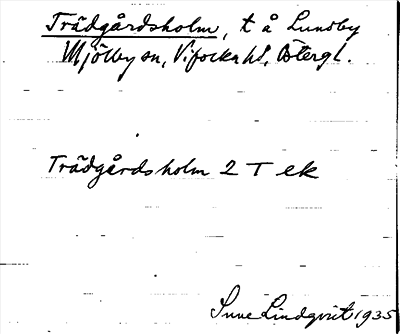 Trädgårdsholm, t å Lundby
Mjölby sn, Vifolka hd, Östergl.
Trädgårdsholm 2 T ek
Sune Lindqvist 1935